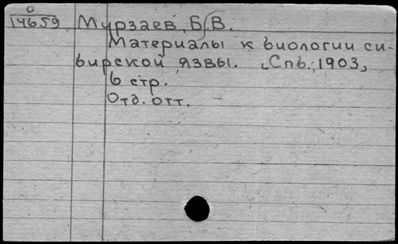 с
14659 Мурзаев, Б. В.
Материалы к биологии си-
бирской язвы. Спб., 1903,
6 стр.
Отд. отт.